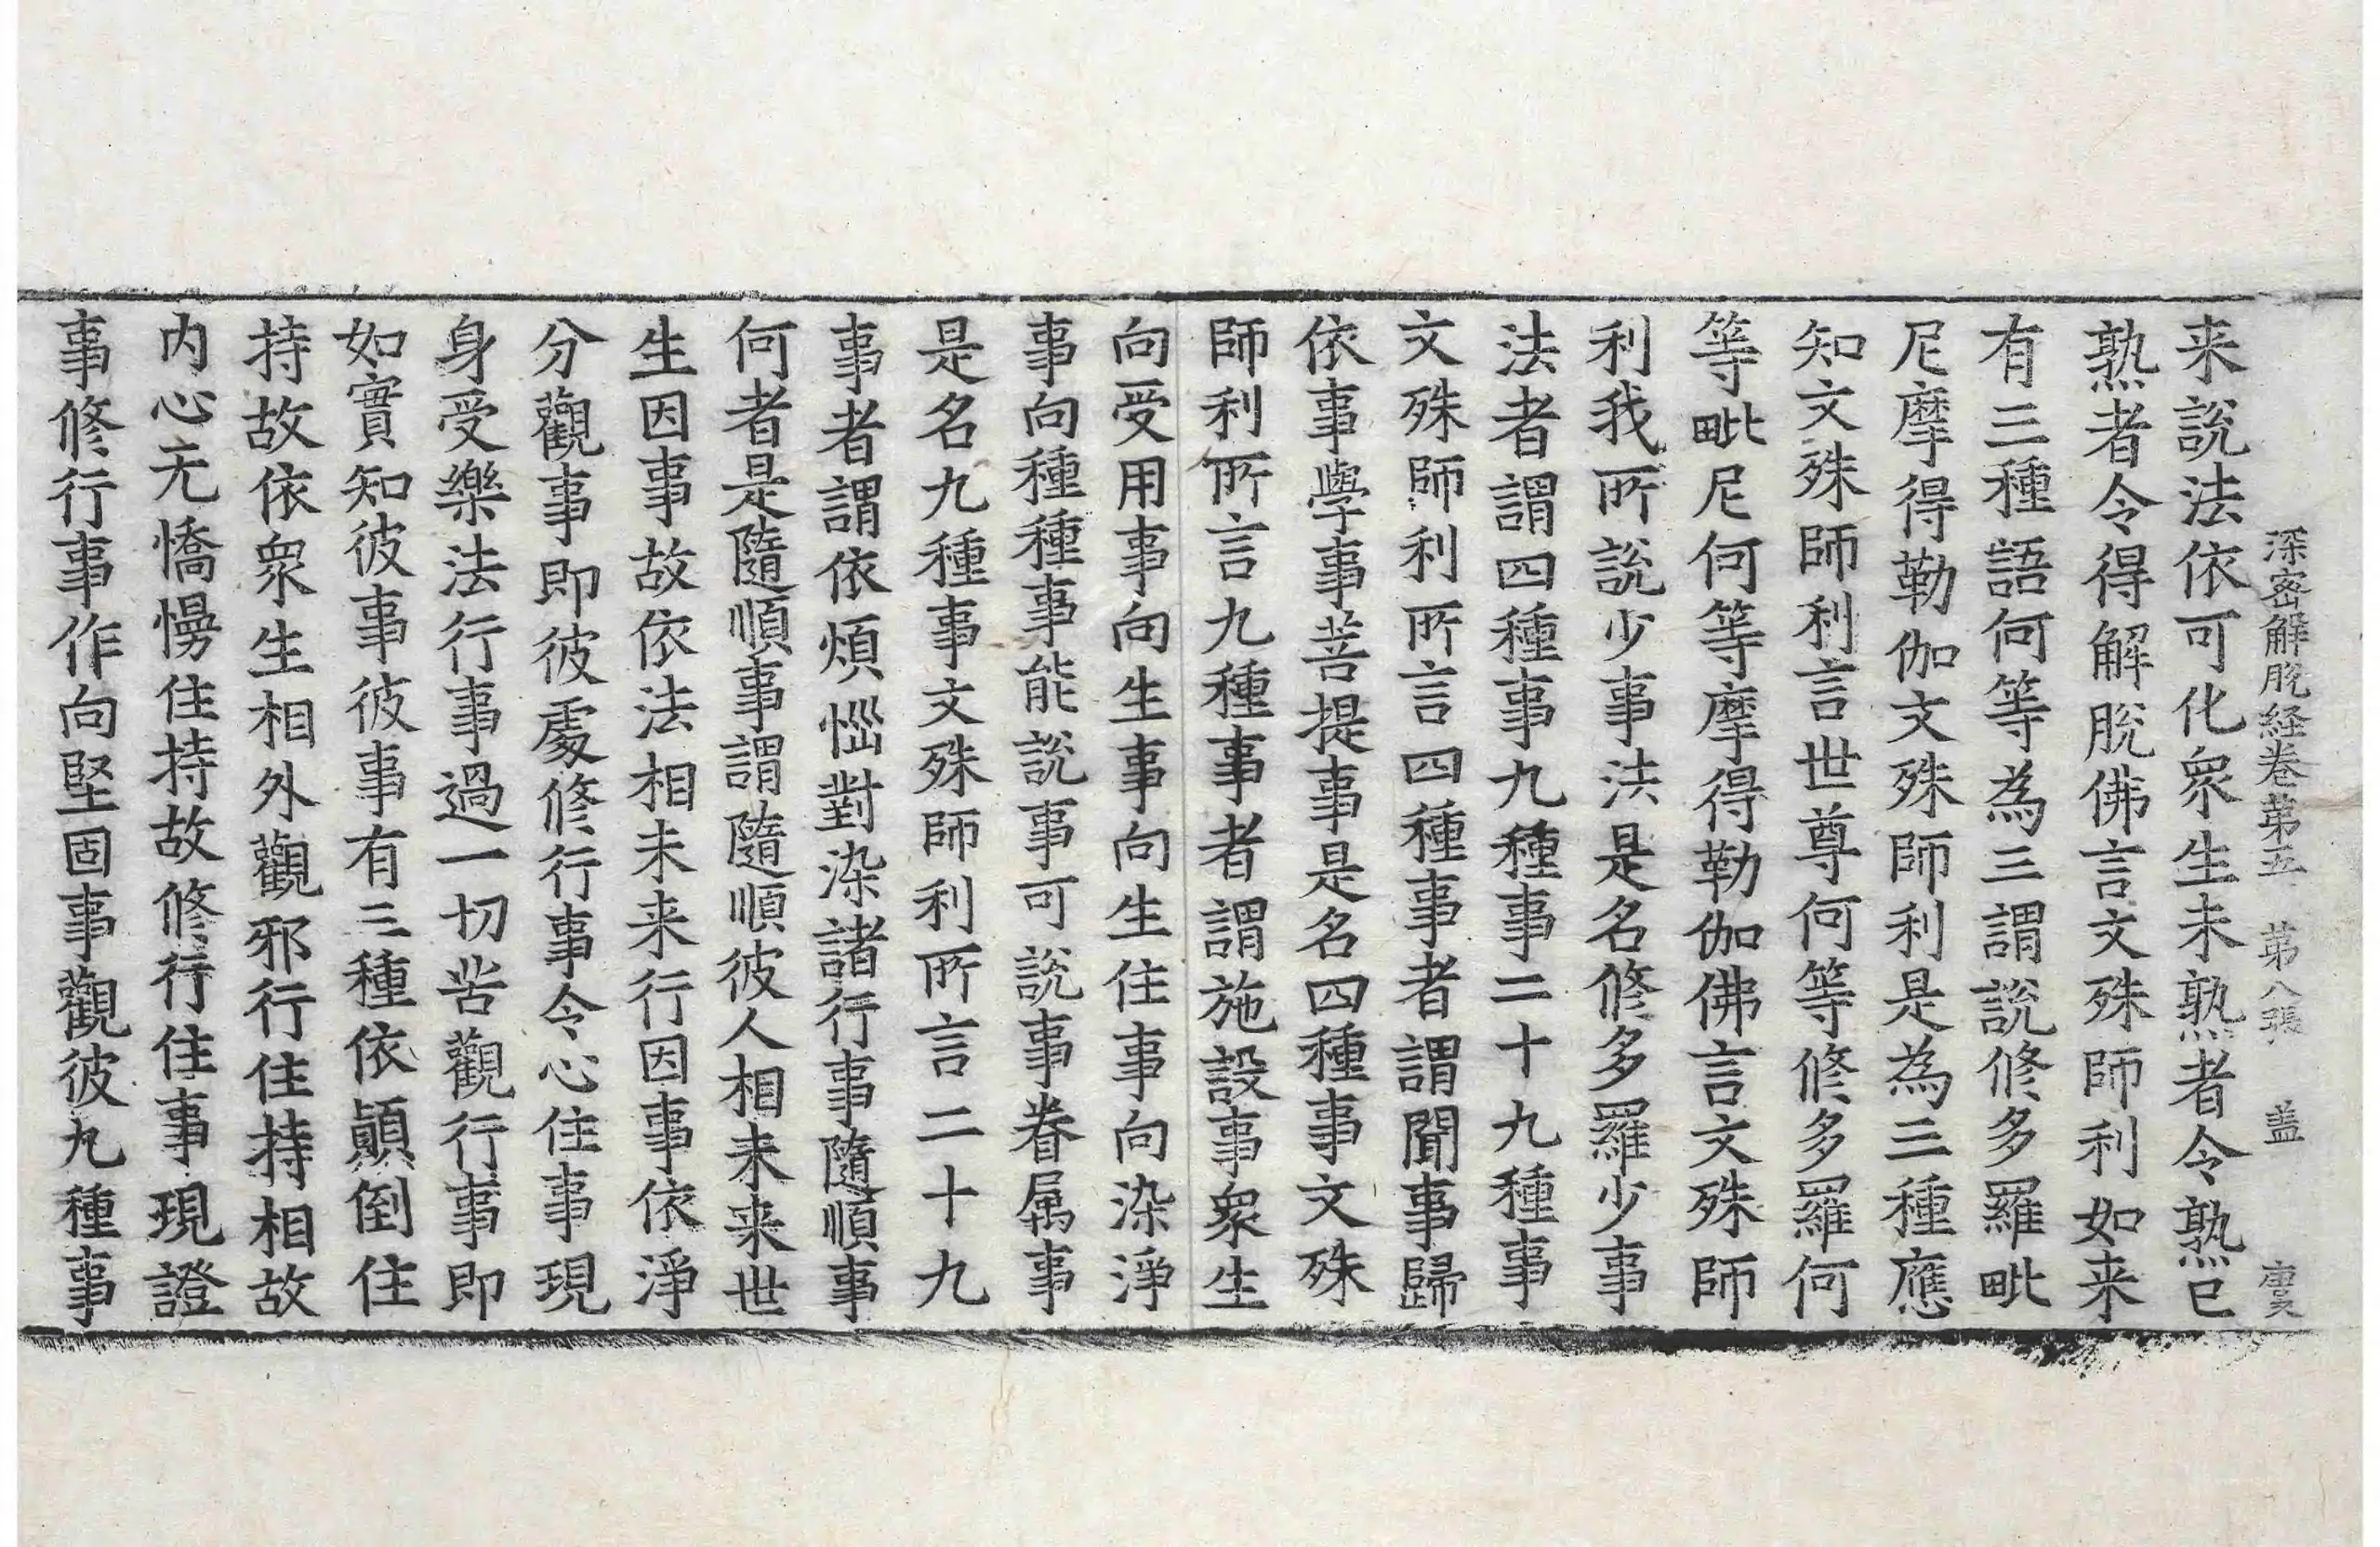 深密解脫経卷苐五 苐八張 盖
来說法依可化衆生未熟者令熟已
熟者令得解脫佛言文殊師利如来
有三種語何等為三謂說修多羅毗
尼摩得勒伽文殊師利是為三種應
知文殊師利言世尊何等修多羅何
等毗尼何等摩得勒伽佛言文殊師
利我所說少事法是名修多羅少事
法者謂四種事九種事二十九種事
文殊師利所言四種事者謂聞事歸
依事學事菩提事是名四種事文殊
師利所言九種事者謂施設事衆生
向受用事向生事向生住事向染淨
事向種種事能說事可說事眷属事
是名九種事文殊師利所言二十九
事者謂依煩惱對染諸行事隨順事
何者是隨順事謂隨順彼人相未来世
生因事故依法相未来行因事依淨
分觀事即彼處修行事令心住事現
身受樂法行事過一切苦觀行事即
如實知彼事彼事有三種依顛倒住
持故依衆生相外觀邪行住持相故
内心无憍慢住持故修行住事現證
事修行事作向堅固事觀彼九種事